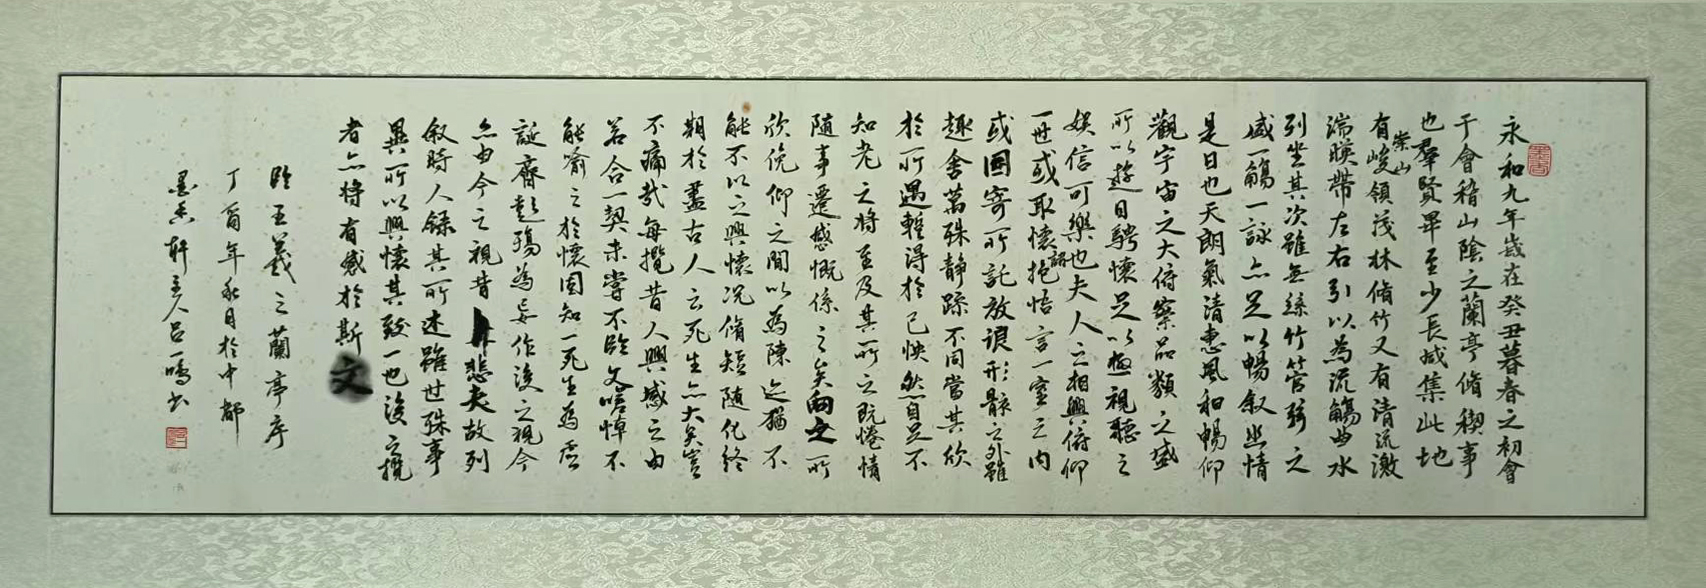 永和九年歲在癸丑暮春之初會
于會稽山陰之蘭亭脩稧事
也羣賢畢至少長咸集此地
有崇山峻領茂林脩竹又有清流激
湍暎帶左右引以為流觴曲水
列坐其次雖無絲竹管弦之
盛一觴一詠亦足以暢叙幽情
是日也天朗氣清惠風和暢仰
觀宇宙之大俯察品類之盛
所以遊目騁懷足以極視聽之
娛信可樂也夫人之相與俯仰
一世或取諸懷抱悟言一室之內
或因寄所託放浪形骸之外雖
趣舍萬殊静躁不同當其欣
於所遇暫得於己怏然自足不
知老之將至及其所之既惓情
隨事遷感慨係之矣向之所
欣俛仰之閒以為陳迹猶不
能不以之興懷況脩短隨化終
期於盡古人云死生亦大矣豈
不痛哉每攬昔人興感之由
若合一契未嘗不臨文嗟悼不
能喻之於懷固知一死生為虛
誕齊彭殤為妄作後之視今
亦由今之視昔悲夫故列
叙時人錄其所述雖世殊事
異所以興懷其致一也後之攬
者亦將有感於斯文
臨王羲之蘭亭序
丁酉年秋月於中都
墨香軒主人呂一鳴書